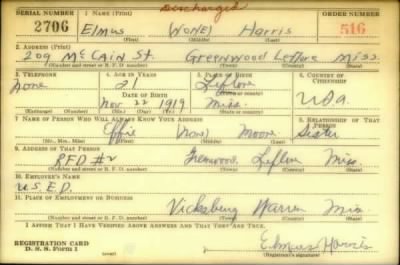 Discharged
SERIAL NUMBER 1. NAME (Print) ORDER NUMBER
2706 Elmus (NONE) Harris 516
(First) (Middle) (Last)
2. ADDRESS (Print)
209 McCain St. Greenwood Leflore Miss.
(Number and street or R. F. D. number) (Town) (County) (State)
3. TELEPHONE 4. AGE IN YEARS 5. PLACE OF BIRTH 6. COUNTRY OF CITIZENSHIP
None 21 Leflore
DATE OF BIRTH (Town or county)
Nov. 22 1919 Miss. USA.
(Exchange) (Number) (Mo.) (Day) (Yr.) (State or country)
7. NAME OF PERSON WHO WILL ALWAYS KNOW YOUR ADDRESS 8. RELATIONSHIP OF THAT PERSON
Effie (None) Moore Sister
(Mr., Mrs., Miss) (First) (Middle) (Last)
9. ADDRESS OF THAT PERSON
RFD #2 Greenwood, Leflore Miss.
(Number and street or R. F. D. number) (Town) (County) (State)
10. EMPLOYER'S NAME
U.S.E.D.
11. PLACE OF EMPLOYMENT OR BUSINESS
Vicksburg Warren Miss
(Number and street or R. F. D. number) (Town) (County) (State)
I AFFIRM THAT I HAVE VERIFIED ABOVE ANSWERS AND THAT THEY ARE TRUE.
REGISTRATION CARD Elmus Harris
D. S. S. Form 1 (over) (Registrant's signature)